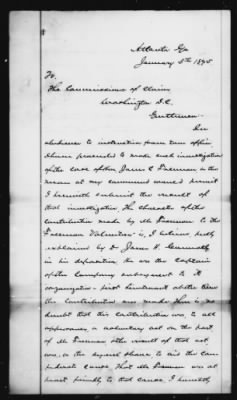 Atlanta Ga
January 5th 1875
To,
The Commissioners of Claims
Washington D.C.
Gentlemen
In
obedience to instruction from your office
I have proceeded to make such investigation
of the case of James C Freeman as the
means at my command would permit
I herewith submit the result of
that investigation The character of the
contribution made by Mr Freeman to the
Freeman Volunteers is, I believe, fully
explained by Dr James H. Connally
in his deposition, he was the Captain
of the Company subsequent to its
organization - first Lieutenant at the time
the contribution was made There is no
doubt that this contribution was to all
appearance a voluntary act on the part
of Mr Freeman the result of that act
was, in the shape to aid the Con-
federate cause That Mr Freeman was at
heart friendly to that cause, I